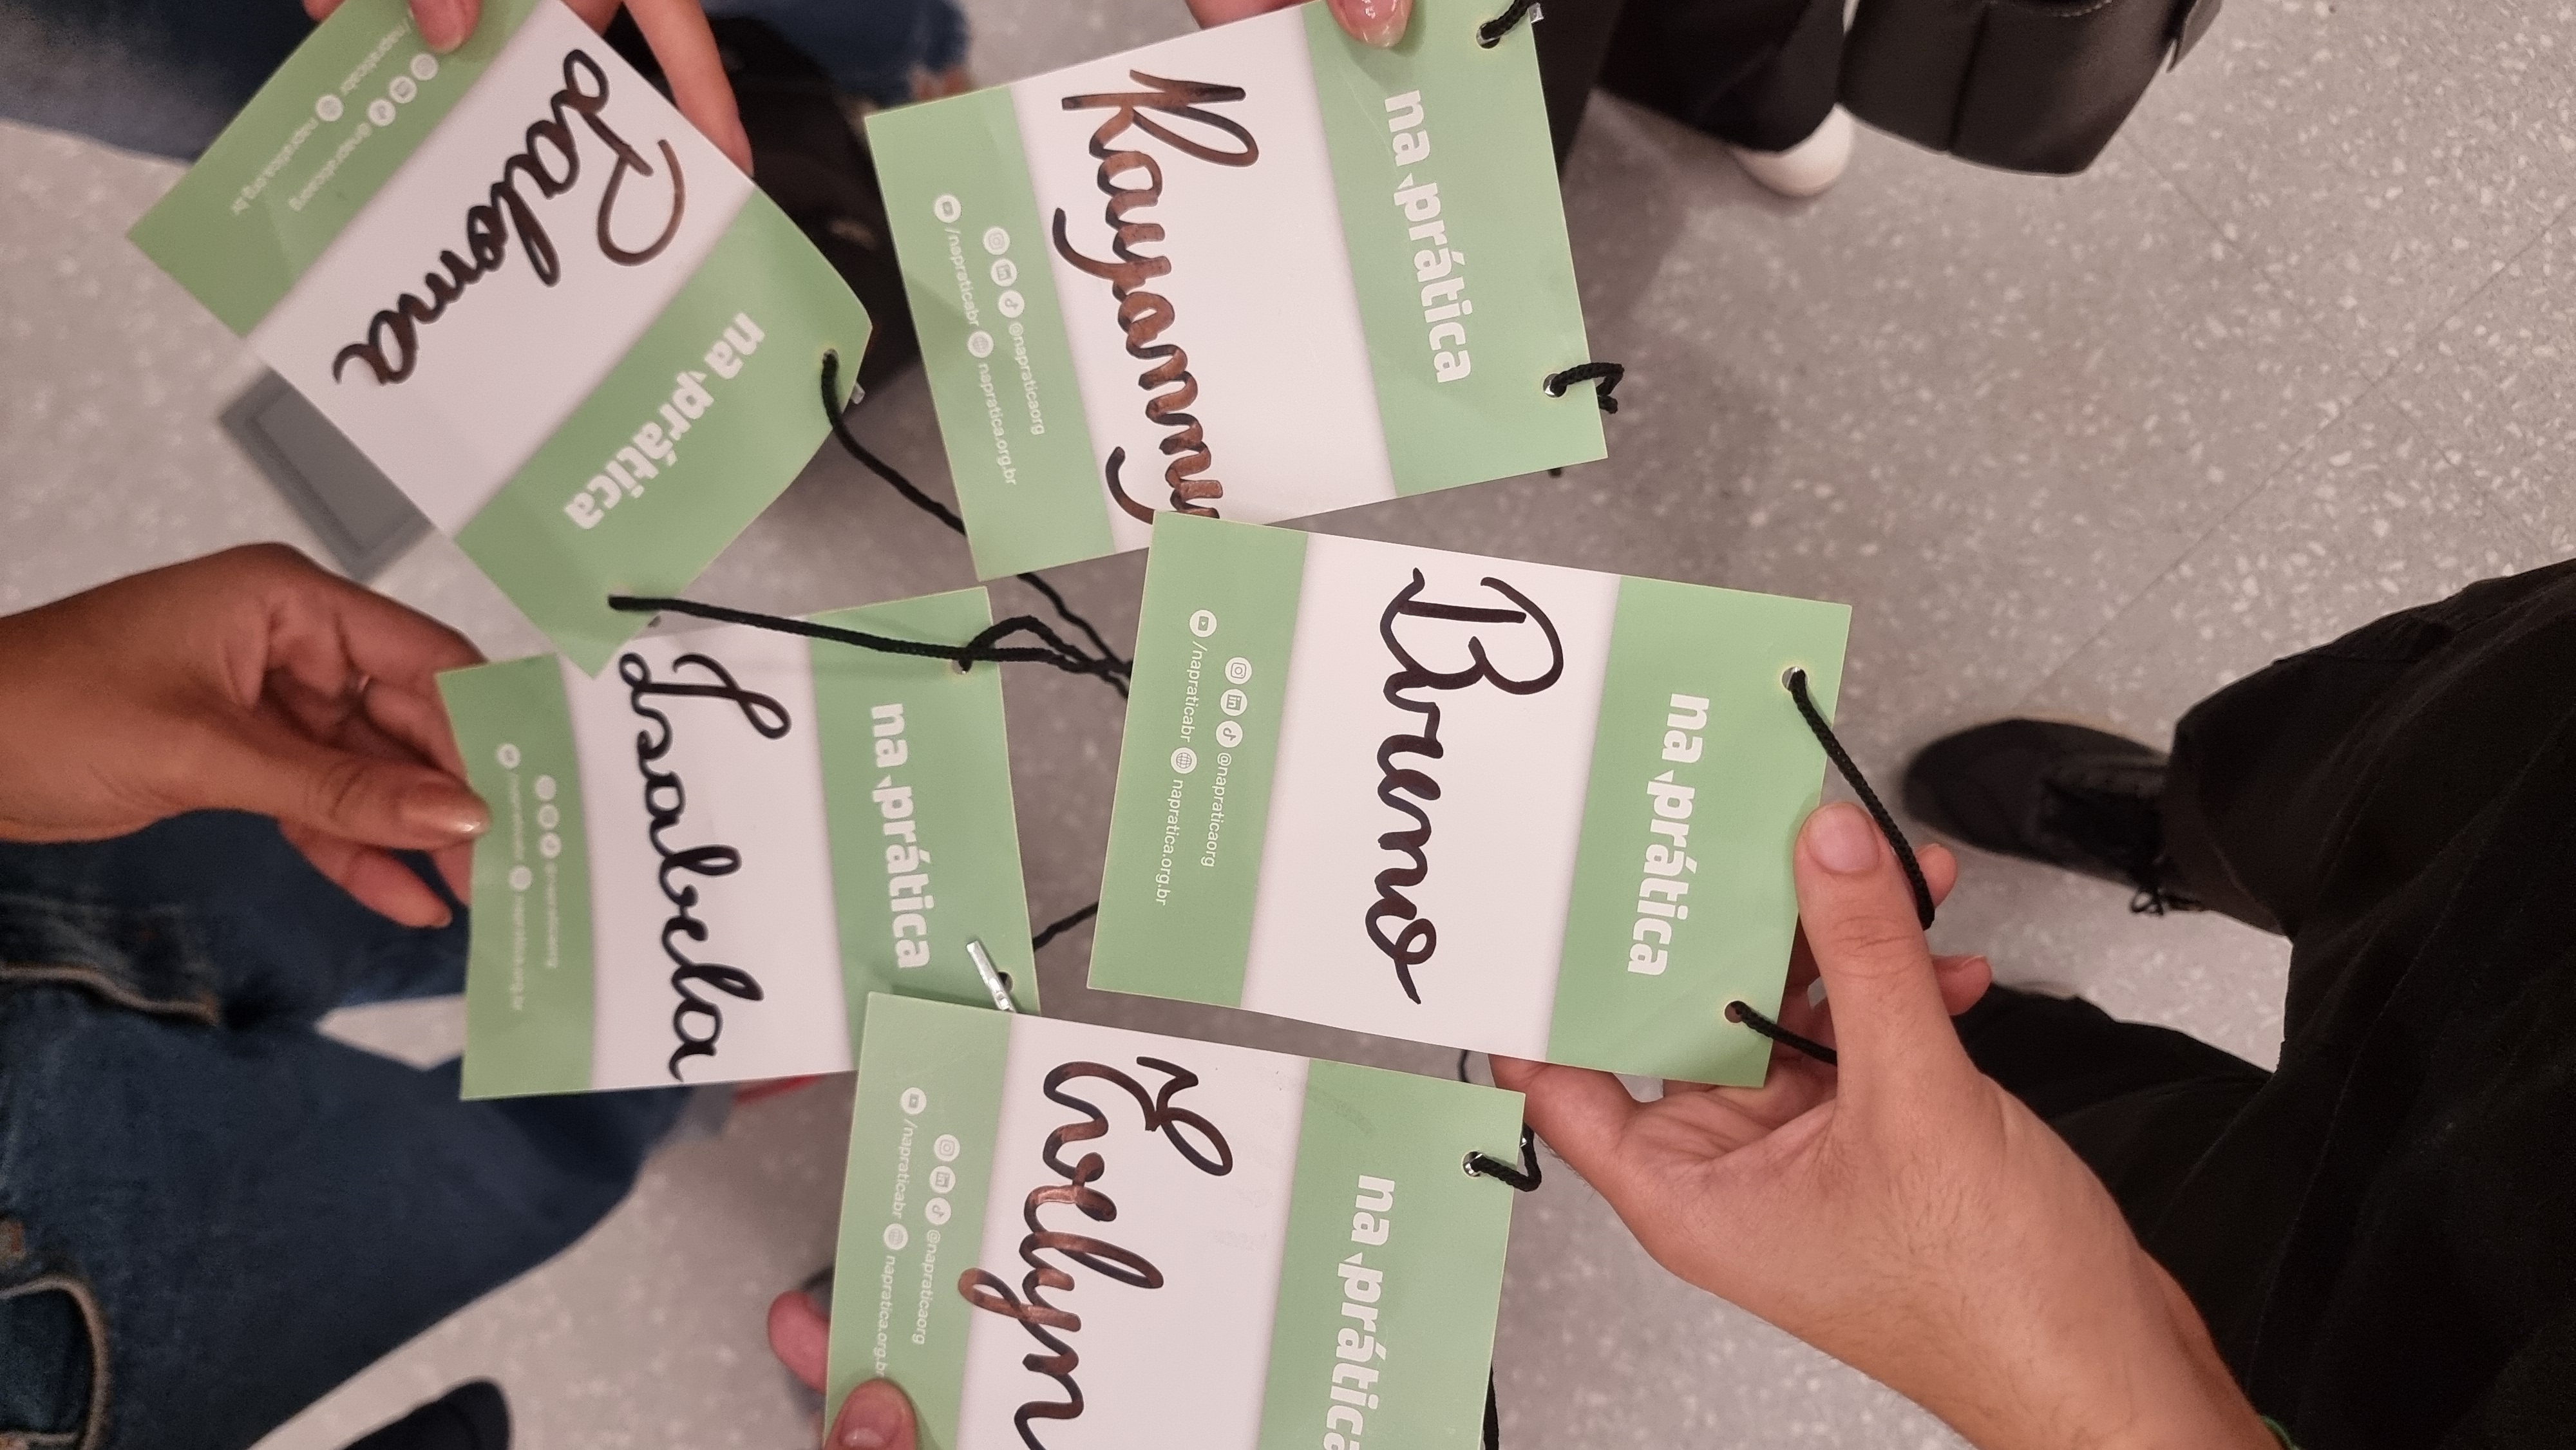 na prática
Evelyn
@napraticaorg
/napraticabr napratica.org.br
na prática
Breno
@napraticaorg
/napraticabr napratica.org.br
na prática
Isabela
@napraticaorg
/napraticabr napratica.org.br
na prática
Rayanny
@napraticaorg
/napraticabr napratica.org.br
na prática
Paloma
@napraticaorg
/napraticabr napratica.org.br